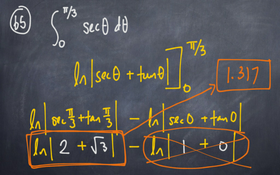 65 ∫₀^π/3 secθ dθ
ln|secθ + tanθ| ]₀^π/3
1.317
ln|sec π/3 + tan π/3| - ln|sec0 + tan0|
ln|2 + √3| - ln|1 + 0|